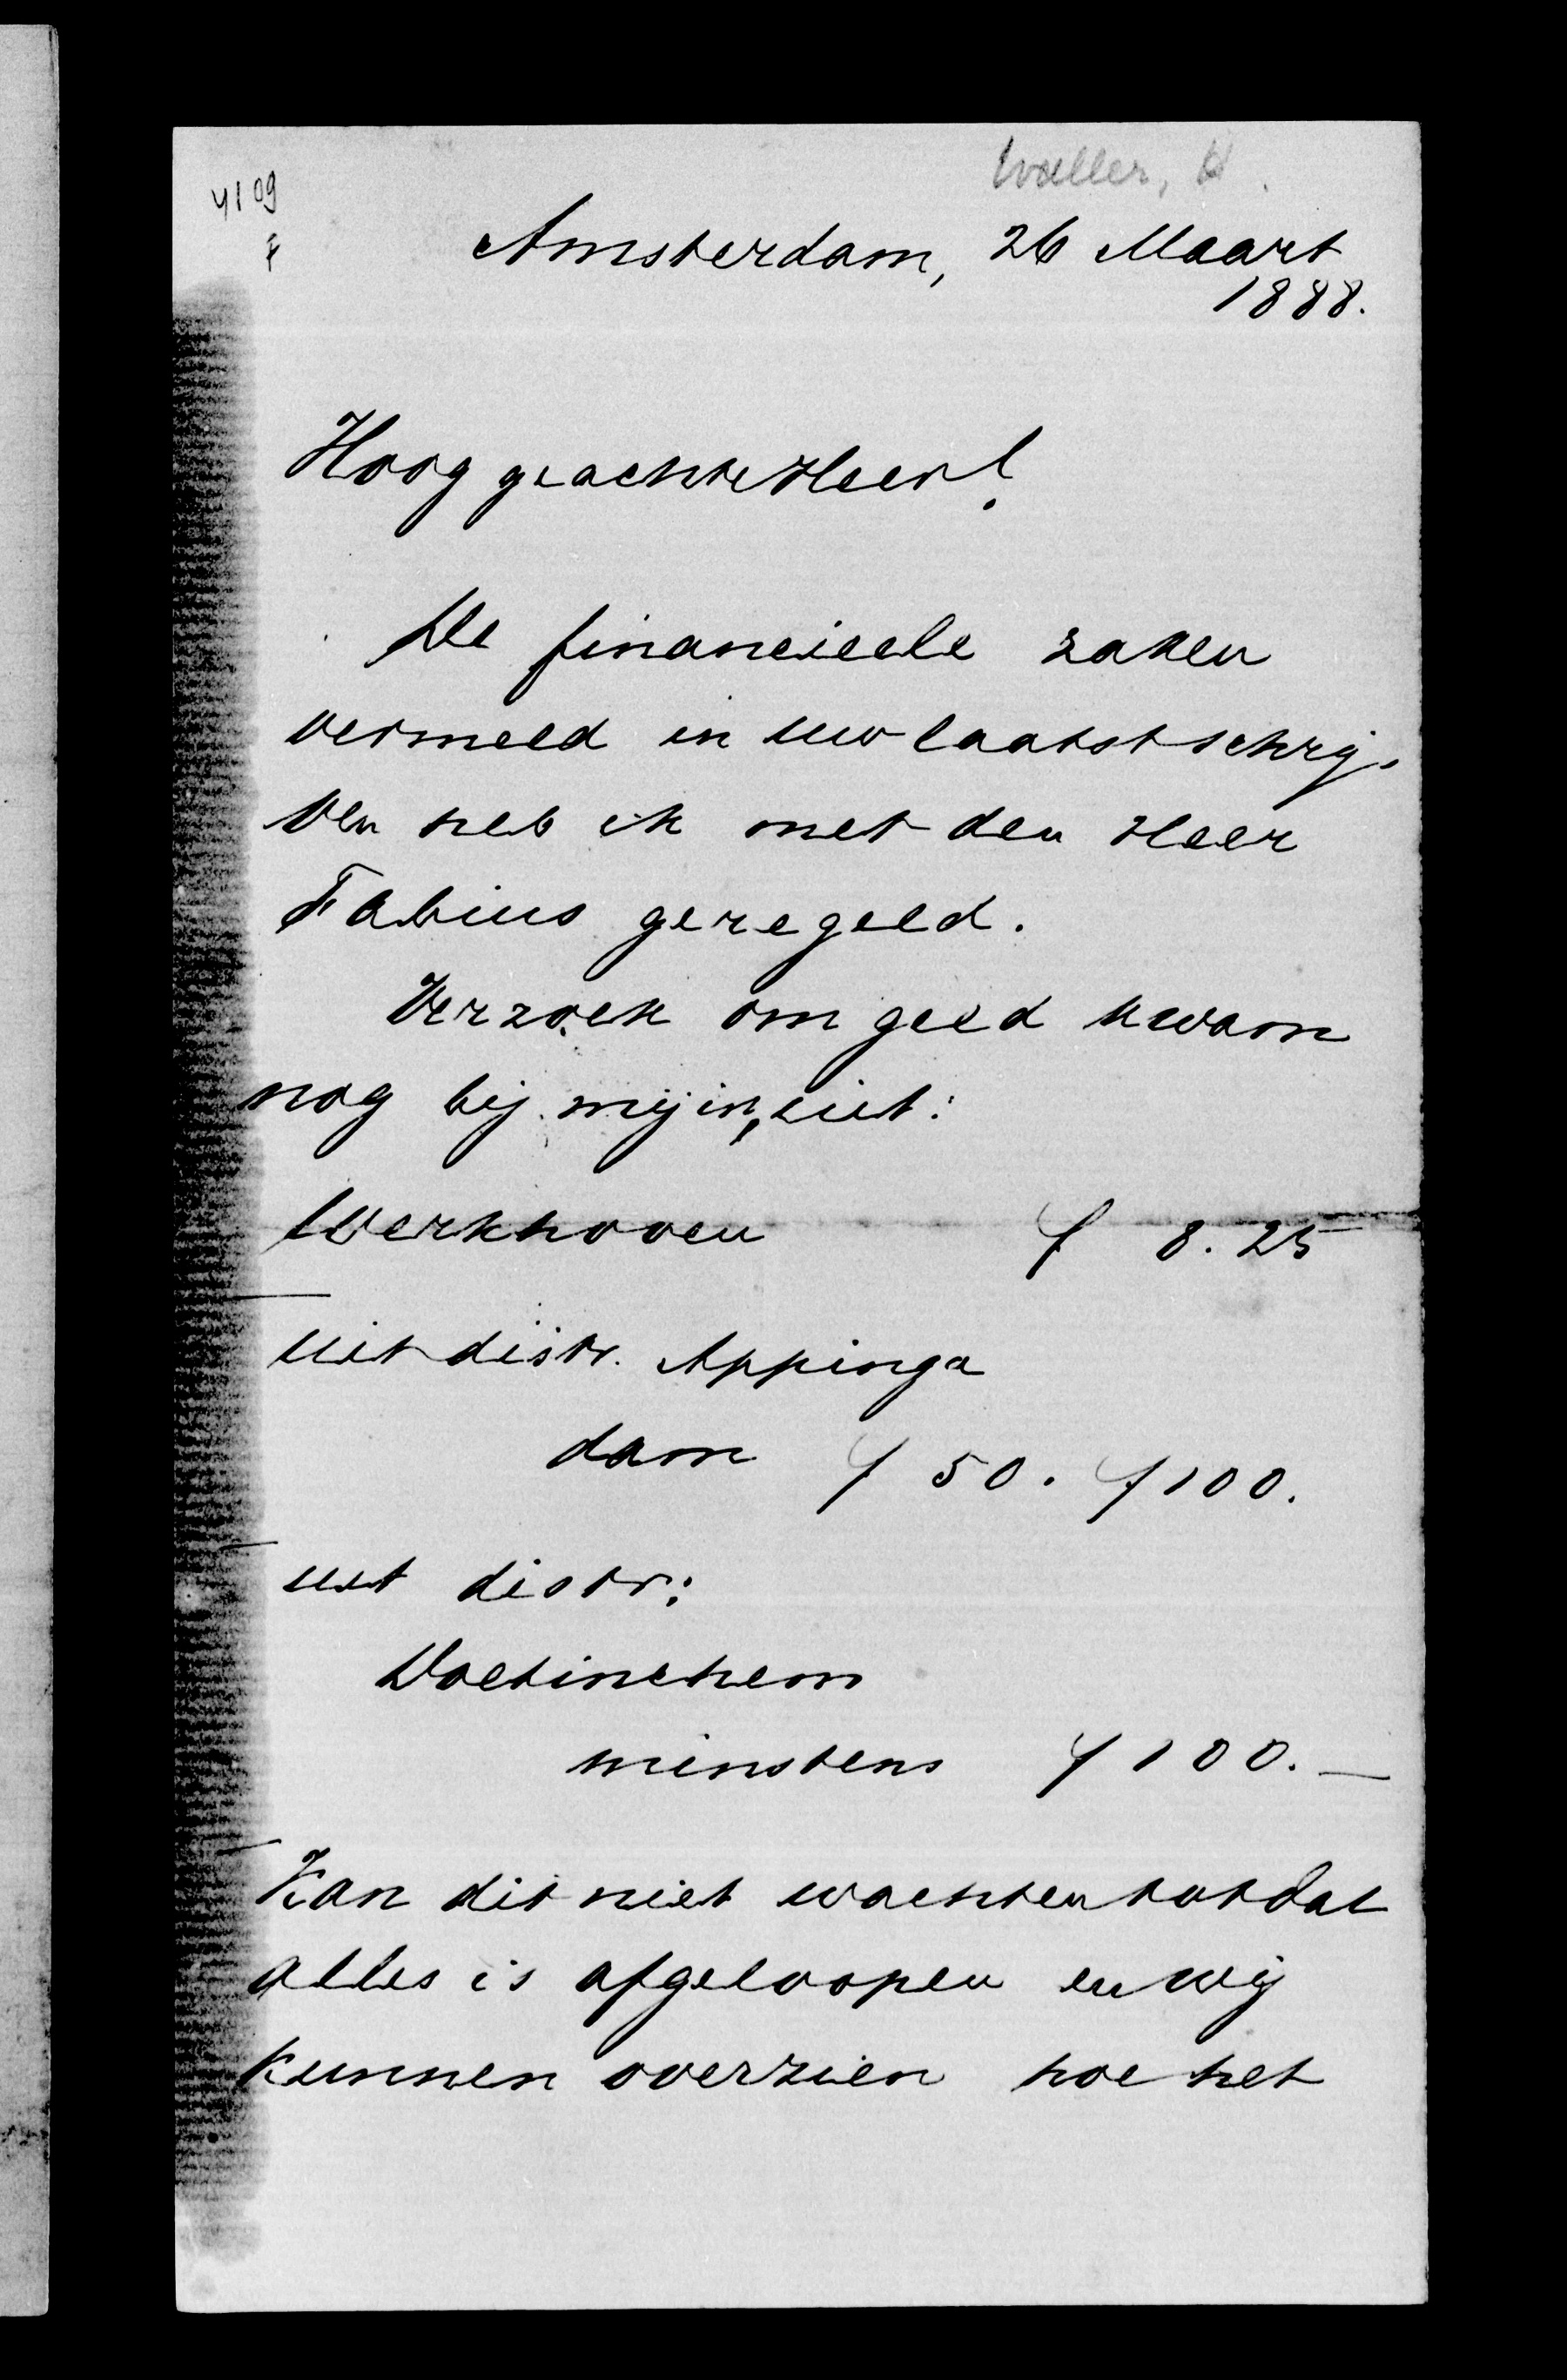 Waller, H.
4109
F
Amsterdam, 26 Maart
1888.
Hoog geachte Heer!
De financieele zaken
vermeld in uw laatst schrij-
ven heb ik met den Heer
Fabius geregeld.
Verzoek om geld kwam
nog bij mij in, uit:
Werkhoven f 8.25
uit distr. Appinga
dam f 50. f 100.
uit distr:
Doetinchem
minstens f 100.—
Kan dit niet wachten totdat
alles is afgeloopen en wij
kunnen overzien hoe het